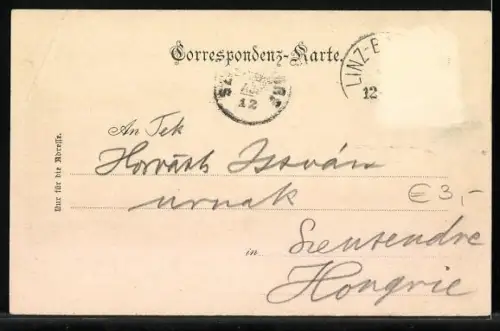 Correspondenz-Karte.
LINZ-B
12
12
An Tek
Horváth István
urnak
€3,-
in Szentendre
Hongrie
Nur für die Adresse.